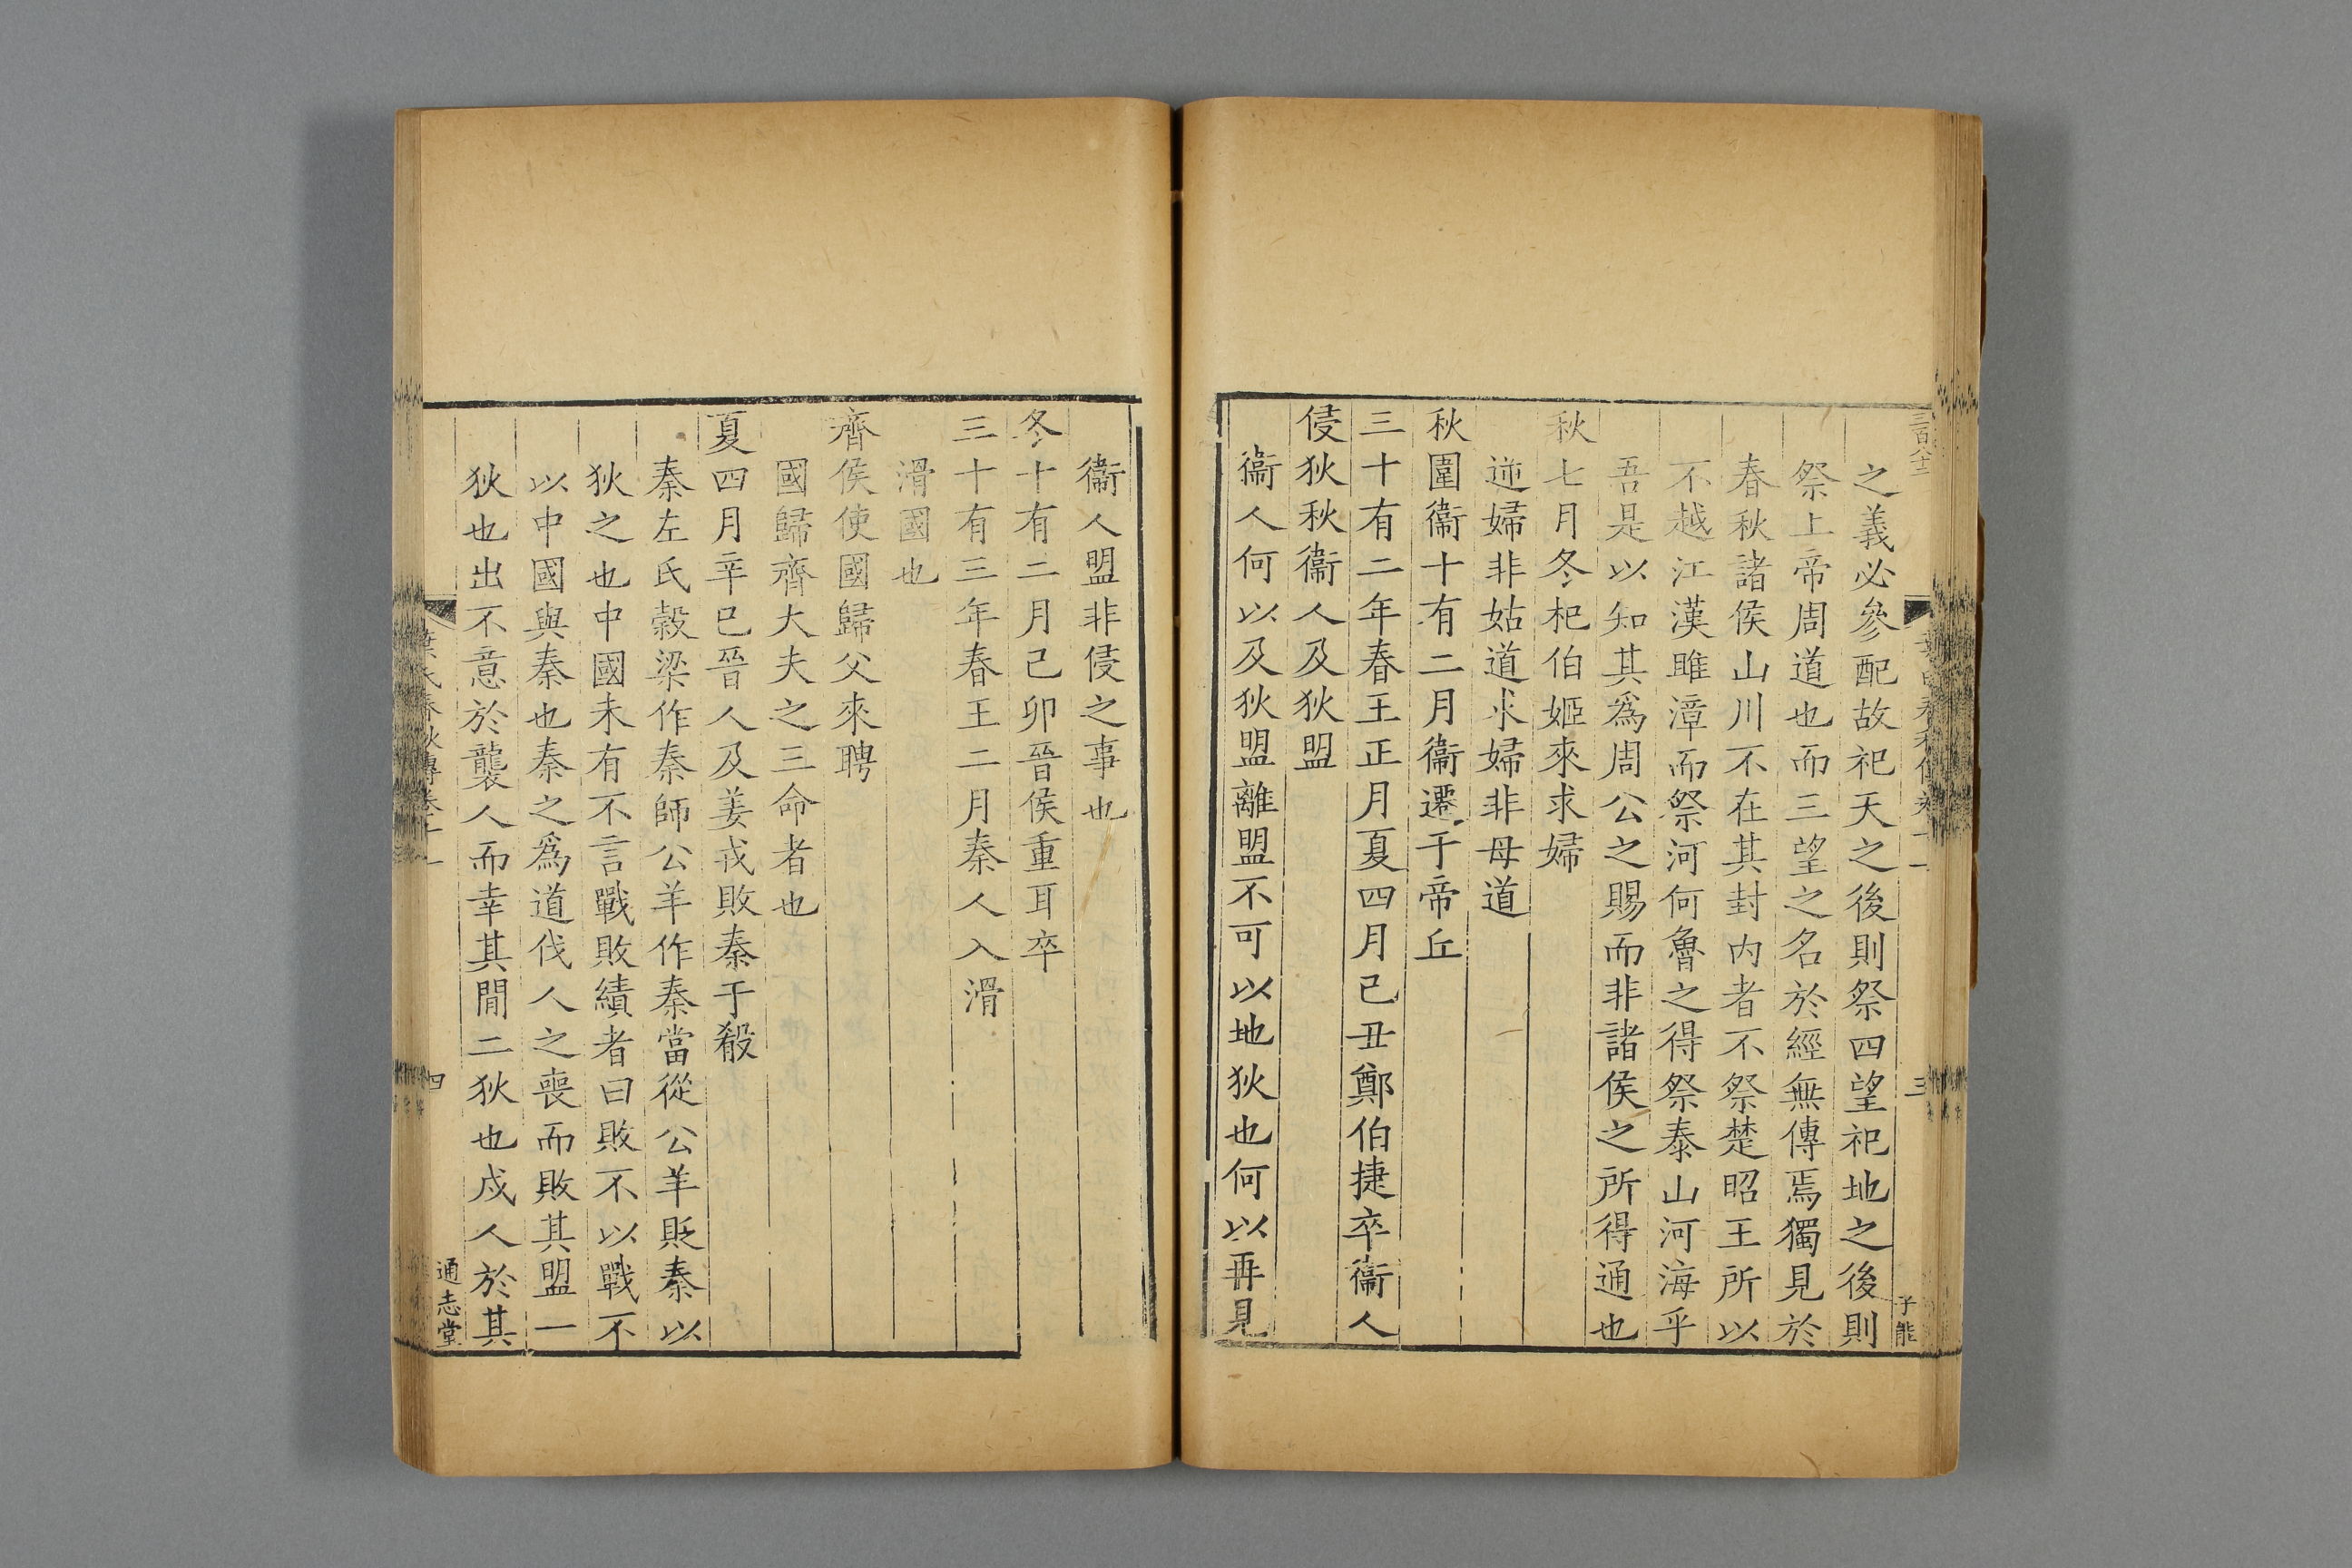 三百八十二
子能
三
之義必參配故祀天之後則祭四望祀地之後則
祭上帝周道也而三望之名於經無傳焉獨見於
春秋諸侯山川不在其封內者不祭楚昭王所以
不越江漢雎漳而祭河何魯之得祭泰山河海乎
吾是以知其爲周公之賜而非諸侯之所得通也
秋七月冬杞伯姬來求婦
逆婦非姑道求婦非母道
秋圍衞十有二月衞遷于帝丘
三十有二年春王正月夏四月己丑鄭伯捷卒衞人
侵狄秋衞人及狄盟
衞人何以及狄盟離盟不可以地狄也何以再見
衞人盟非侵之事也
冬十有二月己卯晉侯重耳卒
三十有三年春王二月秦人入滑
滑國也
齊侯使國歸父來聘
國歸齊大夫之三命者也
夏四月辛巳晉人及姜戎敗秦于殽
秦左氏榖梁作秦師公羊作秦當從公羊貶秦以
狄之也中國未有不言戰敗績者曰敗不以戰不
以中國與秦也秦之爲道伐人之喪而敗其盟一
狄也出不意於襲人而幸其閒二狄也戍人於其
葉氏春秋傳卷十一
四
通志堂